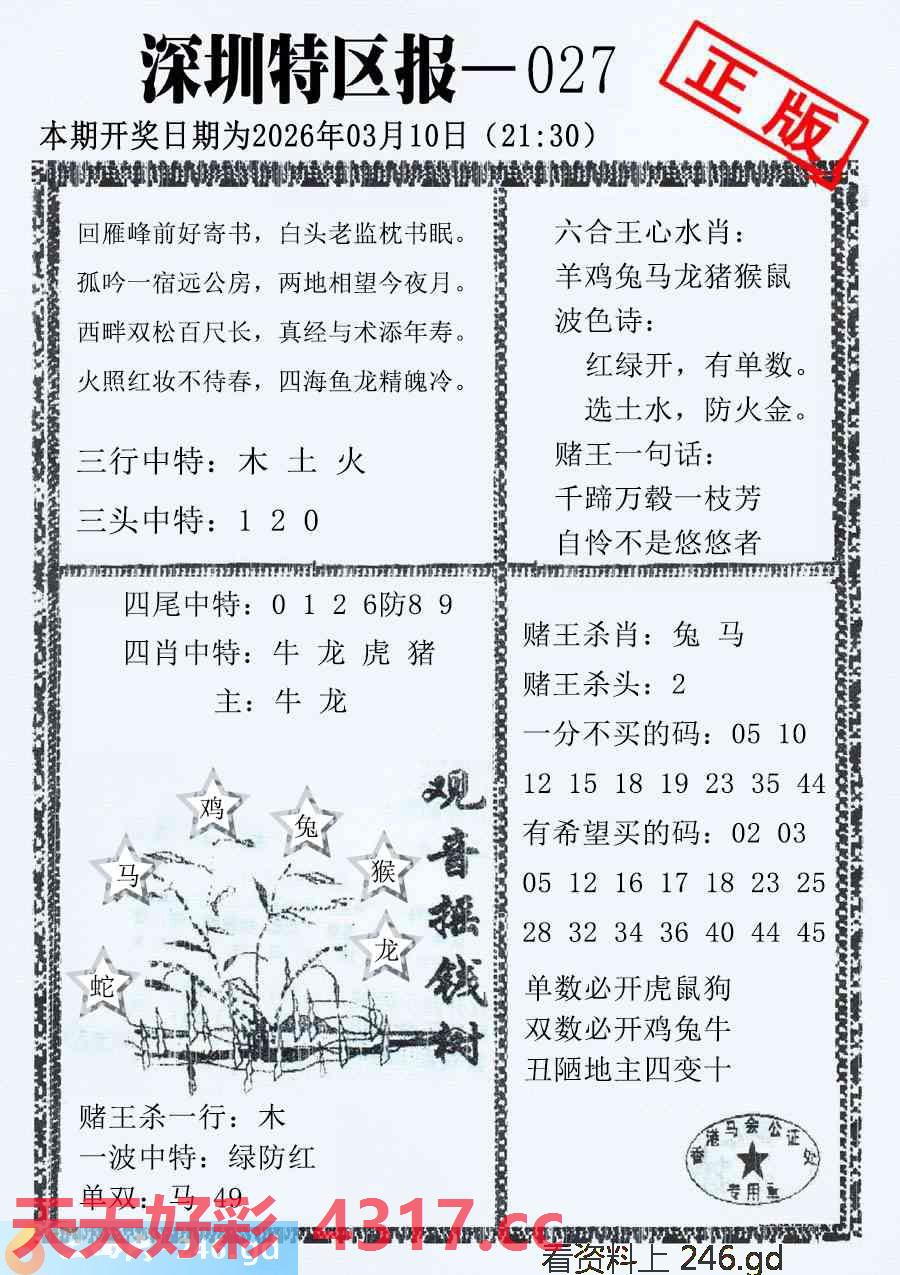 深圳特区报—027
正版
本期开奖日期为2026年03月10日（21:30）
回雁峰前好寄书，白头老监枕书眠。
孤吟一宿远公房，两地相望今夜月。
西畔双松百尺长，真经与术添年寿。
火照红妆不待春，四海鱼龙精魄冷。
三行中特：木 土 火
三头中特：1 2 0
六合王心水肖：
羊鸡兔马龙猪猴鼠
波色诗：
红绿开，有单数。
选土水，防火金。
赌王一句话：
千蹄万毂一枝芳
自怜不是悠悠者
四尾中特：0 1 2 6防8 9
四肖中特：牛 龙 虎 猪
主：牛 龙
观音摇钱树
鸡
兔
马
猴
龙
蛇
赌王杀一行：木
一波中特：绿防红
单双：马 49
赌王杀肖：兔 马
赌王杀头：2
一分不买的码：05 10
12 15 18 19 23 35 44
有希望买的码：02 03
05 12 16 17 18 23 25
28 32 34 36 40 44 45
单数必开虎鼠狗
双数必开鸡兔牛
丑陋地主四变十
香港马会公证处
专用章
天天好彩 4317.cc
246.gd
看资料上 246.gd